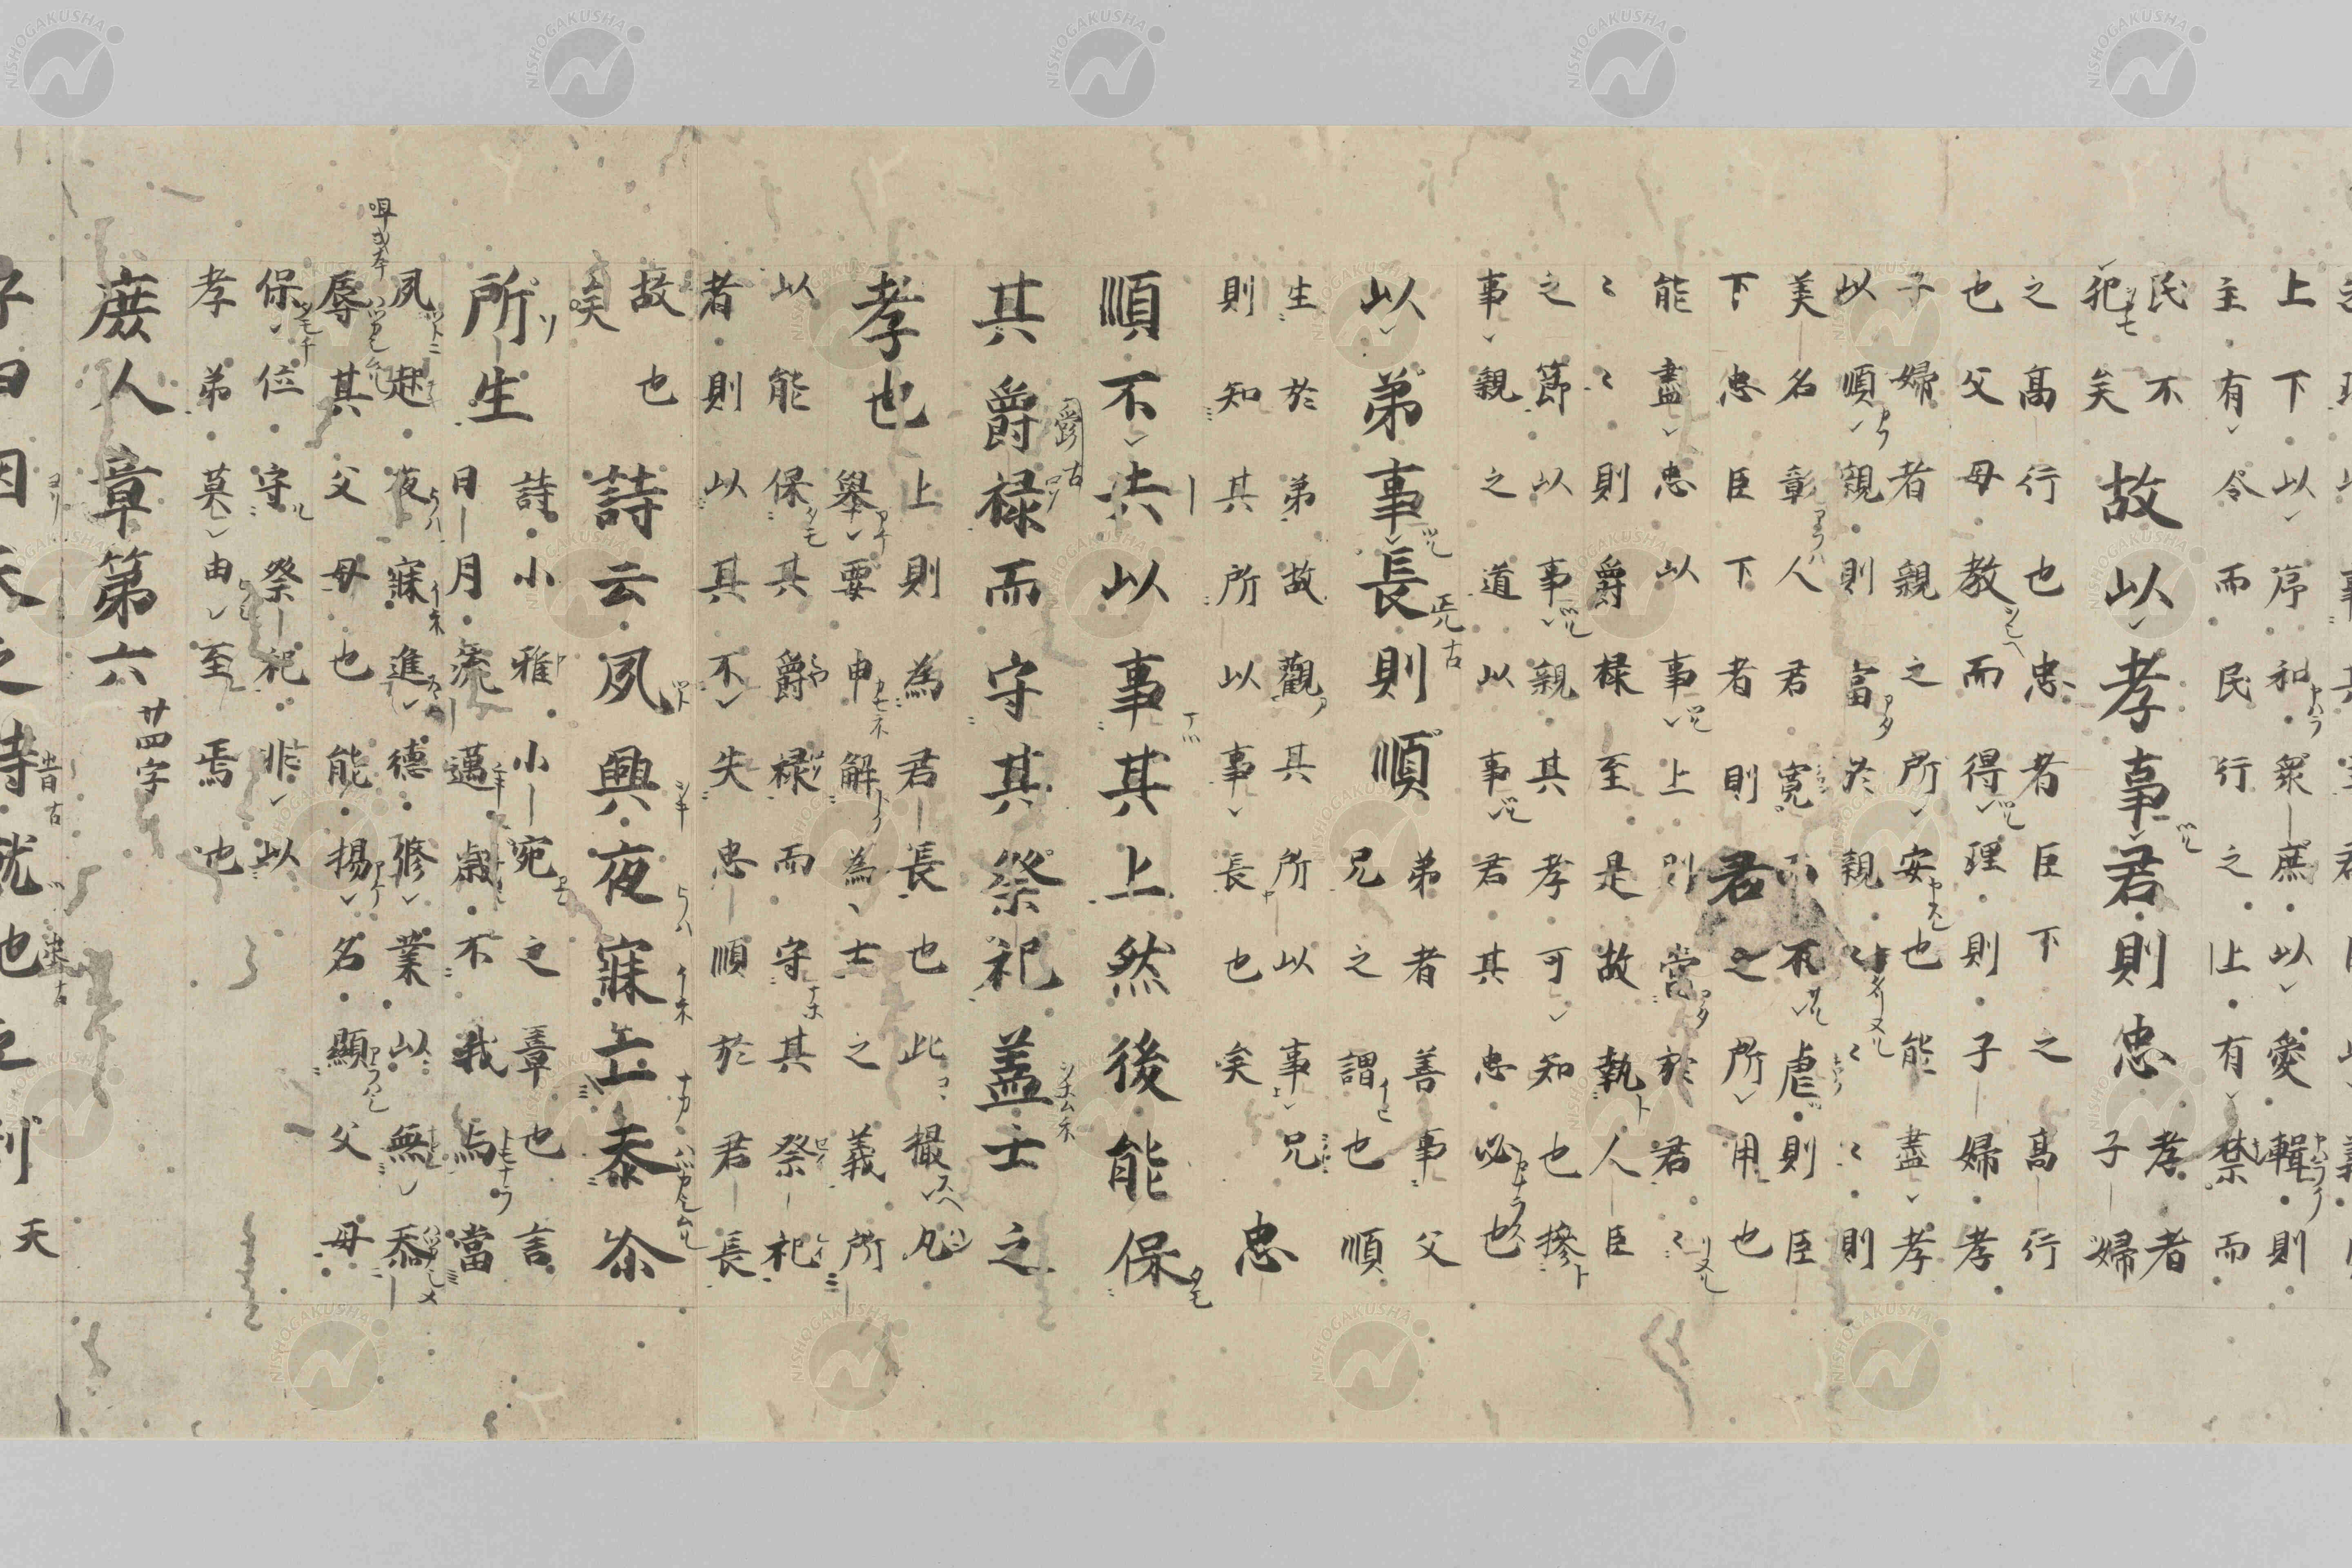 上下以序和衆庶以愛輯則
主有令而民行之上有禁而
民不
犯矣
故以孝事君則忠
孝者
子婦
之高行也忠者臣下之高行
也父母教而得理則子婦孝
子婦者親之所安也能盡孝
以順親則當於親〻〻〻則
美名彰人君寛而不虐則臣
下忠臣下者則君之所用也
能盡忠以事上則當於君〻
〻〻則爵禄至是故執人臣
之節以事親其孝可知也摻
事親之道以事君其忠必也
以弟事長則順
弟者善事父
兄之謂也順
生於弟故觀其所以事兄
則知其所以事長也矣
忠
順不失以事其上然後能保
其爵禄而守其祭祀盖士之
孝也
上則為君長也此撮凡
舉要申解為士之義所
以能保其爵禄而守其祭祀
者則以其不失忠順於君長
故也
矣
詩云夙興夜寐亡忝尒
所生
詩小雅小宛之章也言
日月流邁歳不我与當
夙起夜寐進德修業以無忝
辱其父母也能揚名顯父母
保位守祭祀非以
孝弟莫由至焉也
庶人章第六 廿四字
子曰因天之時就也之利 天